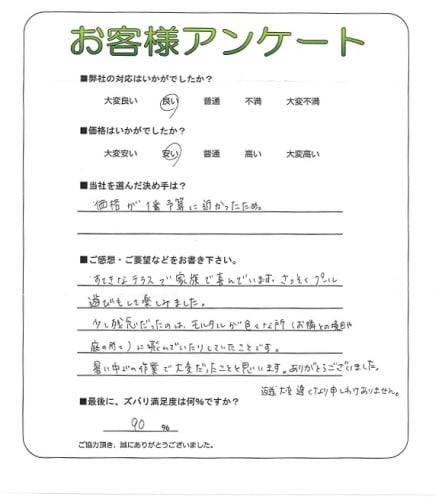 お客様アンケート
■弊社の対応はいかがでしたか？
大変良い 良い 普通 不満 大変不満
■価格はいかがでしたか？
大変安い 安い 普通 高い 大変高い
■当社を選んだ決め手は？
価格が1番予算に近かったため。
■ご感想・ご要望などをお書き下さい。
すてきなテラスで家族で喜んでいます。さっそくプール
遊びもして楽しみました。
少し残念だったのは、モルタルが色々な所（お隣との境目や
庭の所々）に飛んでいたりしていたことです。
暑い中での作業で大変だったことと思います。ありがとうございました。
返送大変遅くなり申しわけありません。
■最後に、ズバリ満足度は何%ですか？
90 %
ご協力頂き、誠にありがとうございました。